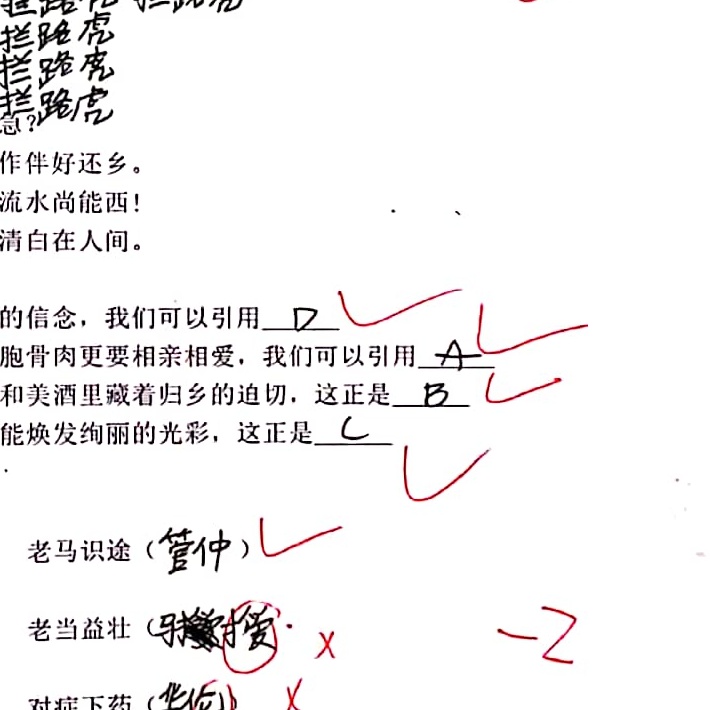 拦路虎 拦路虎
拦路虎
拦路虎
拦路虎
急?
作伴好还乡。
流水尚能西!
清白在人间。
的信念，我们可以引用 D
胞骨肉更要相亲相爱，我们可以引用 A
和美酒里藏着归乡的迫切，这正是 B
能焕发绚丽的光彩，这正是 C
老马识途（管仲）
老当益壮（
-2
对症下药（华佗）